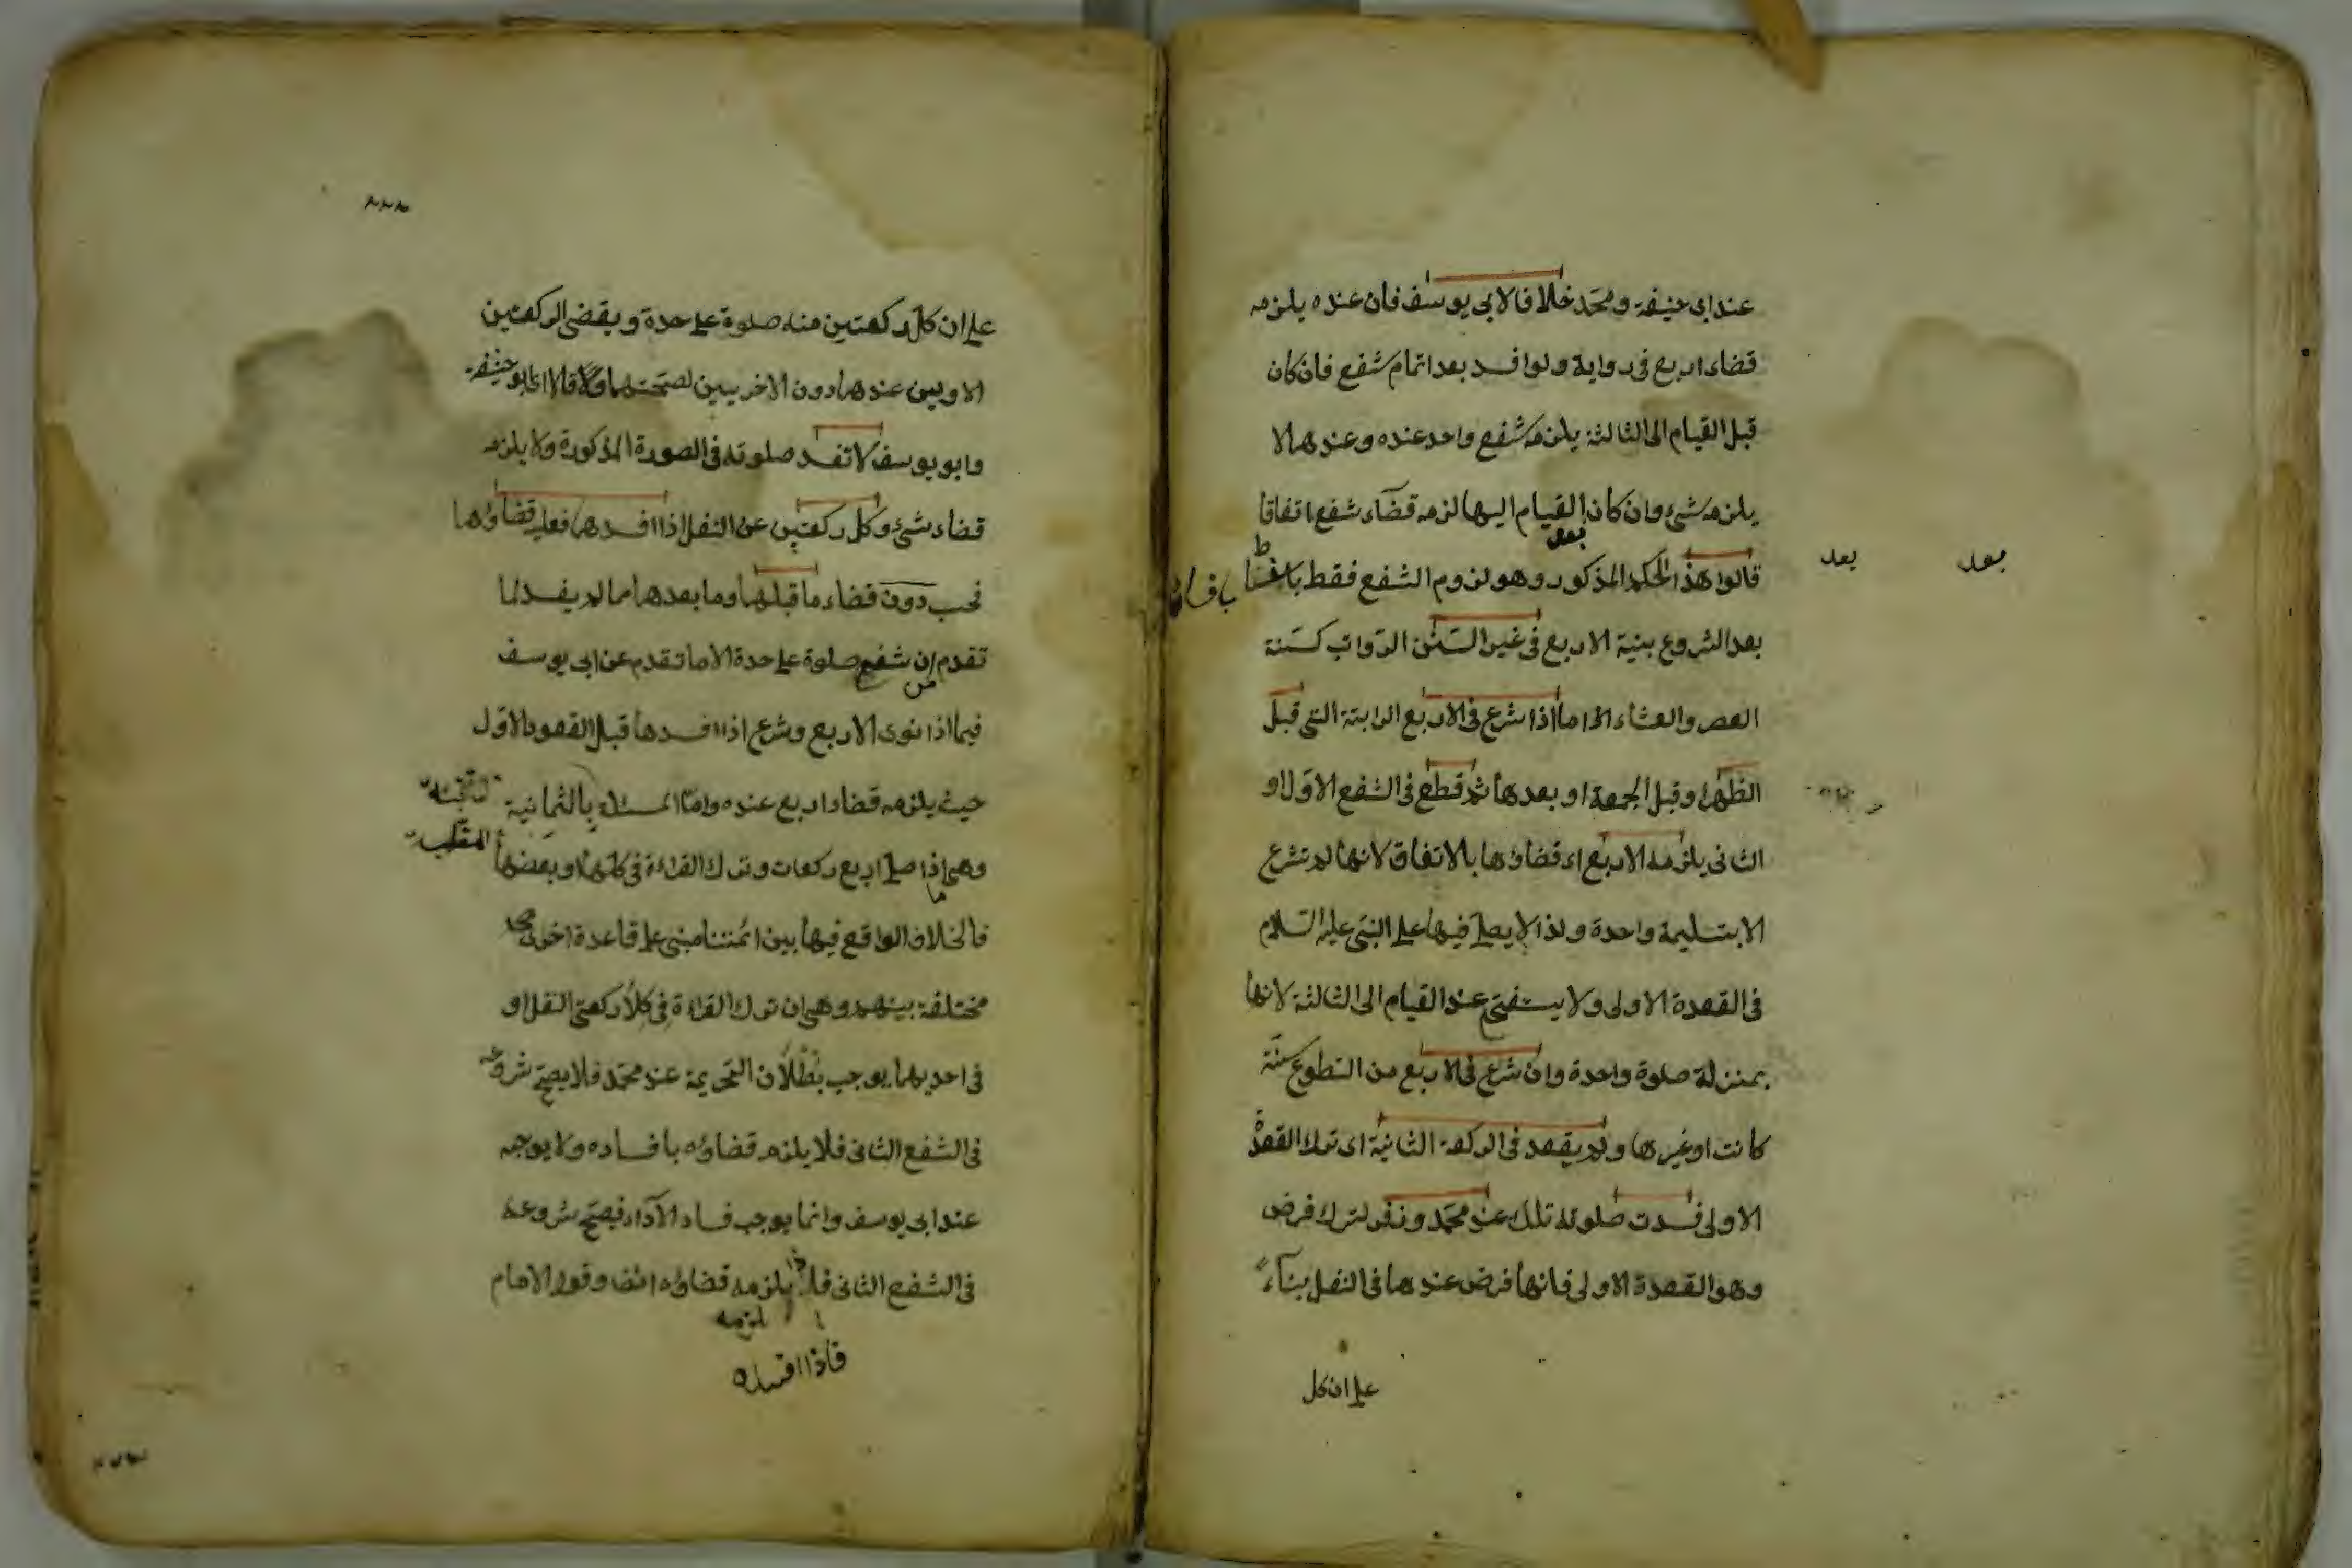 عند ابى حنيفة ومحمد خلافا لابى يوسف فان عنده يلزمه
قضاء اربع فى رواية ولو افسد بعد اتمام شفع فان كان
قبل القيام الى الثالثة يلزمه شفع واحد عنده وعندهما لا
يلزمه شئ وان كان القيام اليها لزمه قضاء شفع اتفاقا
بعد
قالوا هذا الحكم المذكور وهو لزوم الشفع فقط
بعد
بعد
بعد الشروع بنية الاربع فى غير السنن الرواتب كسنة
العصر والعشاء اما اذا شرع فى الاربع الراتبة التى قبل
الظهر او قبل الجمعة او بعدها ثم قطع فى الشفع الاول او
الثانى يلزمه الاربع اى قضاؤها بالاتفاق لانها لم تشرع
الا بتسليمة واحدة ولذا لا يصلى فيها على النبى عليه السلام
فى القعدة الاولى ولا يستفتح عند القيام الى الثالثة لانها
بمنزلة صلوة واحدة وان شرع فى الاربع من التطوع سنة
كانت او غيرها ولم يقعد فى الركعة الثانية اى ترك القعدة
الاولى فسدت صلوته تلك عند محمد وزفر لترك فرض
وهو القعدة الاولى فانها فرض عندهما فى النفل بناء
على ان كل
على ان كل ركعتين منه صلوة على حدة ويقضى الركعتين
الاوليين عندهما دون الاخريين لصحتهما وقالا اى ابو حنيفة
وابو يوسف لا تفسد صلوته فى الصورة المذكورة ولا يلزمه
قضاء شئ وكل ركعتين من النفل اذا افسدهما فعليه قضاؤهما
فحسب دون قضاء ما قبلهما وما بعدهما ما لم يفسد لما
تقدم ان شفع صلوة على حدة الا ما تقدم عن ابى يوسف
من
فيما اذا نوى الاربع وشرع اذا افسدها قبل القعود الاول
حيث يلزمه قضاء اربع عنده واما المسئلة بالثمانية
الملقبة
وهى اذا صلى اربع ركعات وترك القراءة فى كلها او بعضها
فالخلاف الواقع فيها بين ائمتنا مبنى على قاعدة اخرى
مختلفة بينهم وهى ان ترك القراءة فى كلا ركعتى النفل او
فى احديهما يوجب بطلان التحريمة عند محمد فلا يصح شروعه
فى الشفع الثانى فلا يلزمه قضاؤه بافساده ولا يوجبه
عند ابى يوسف وانما يوجب فساد الاداء فيصح شروعه
فى الشفع الثانى فلا يلزمه قضاؤه وقول الامام
يلزمه
فاذا افسده